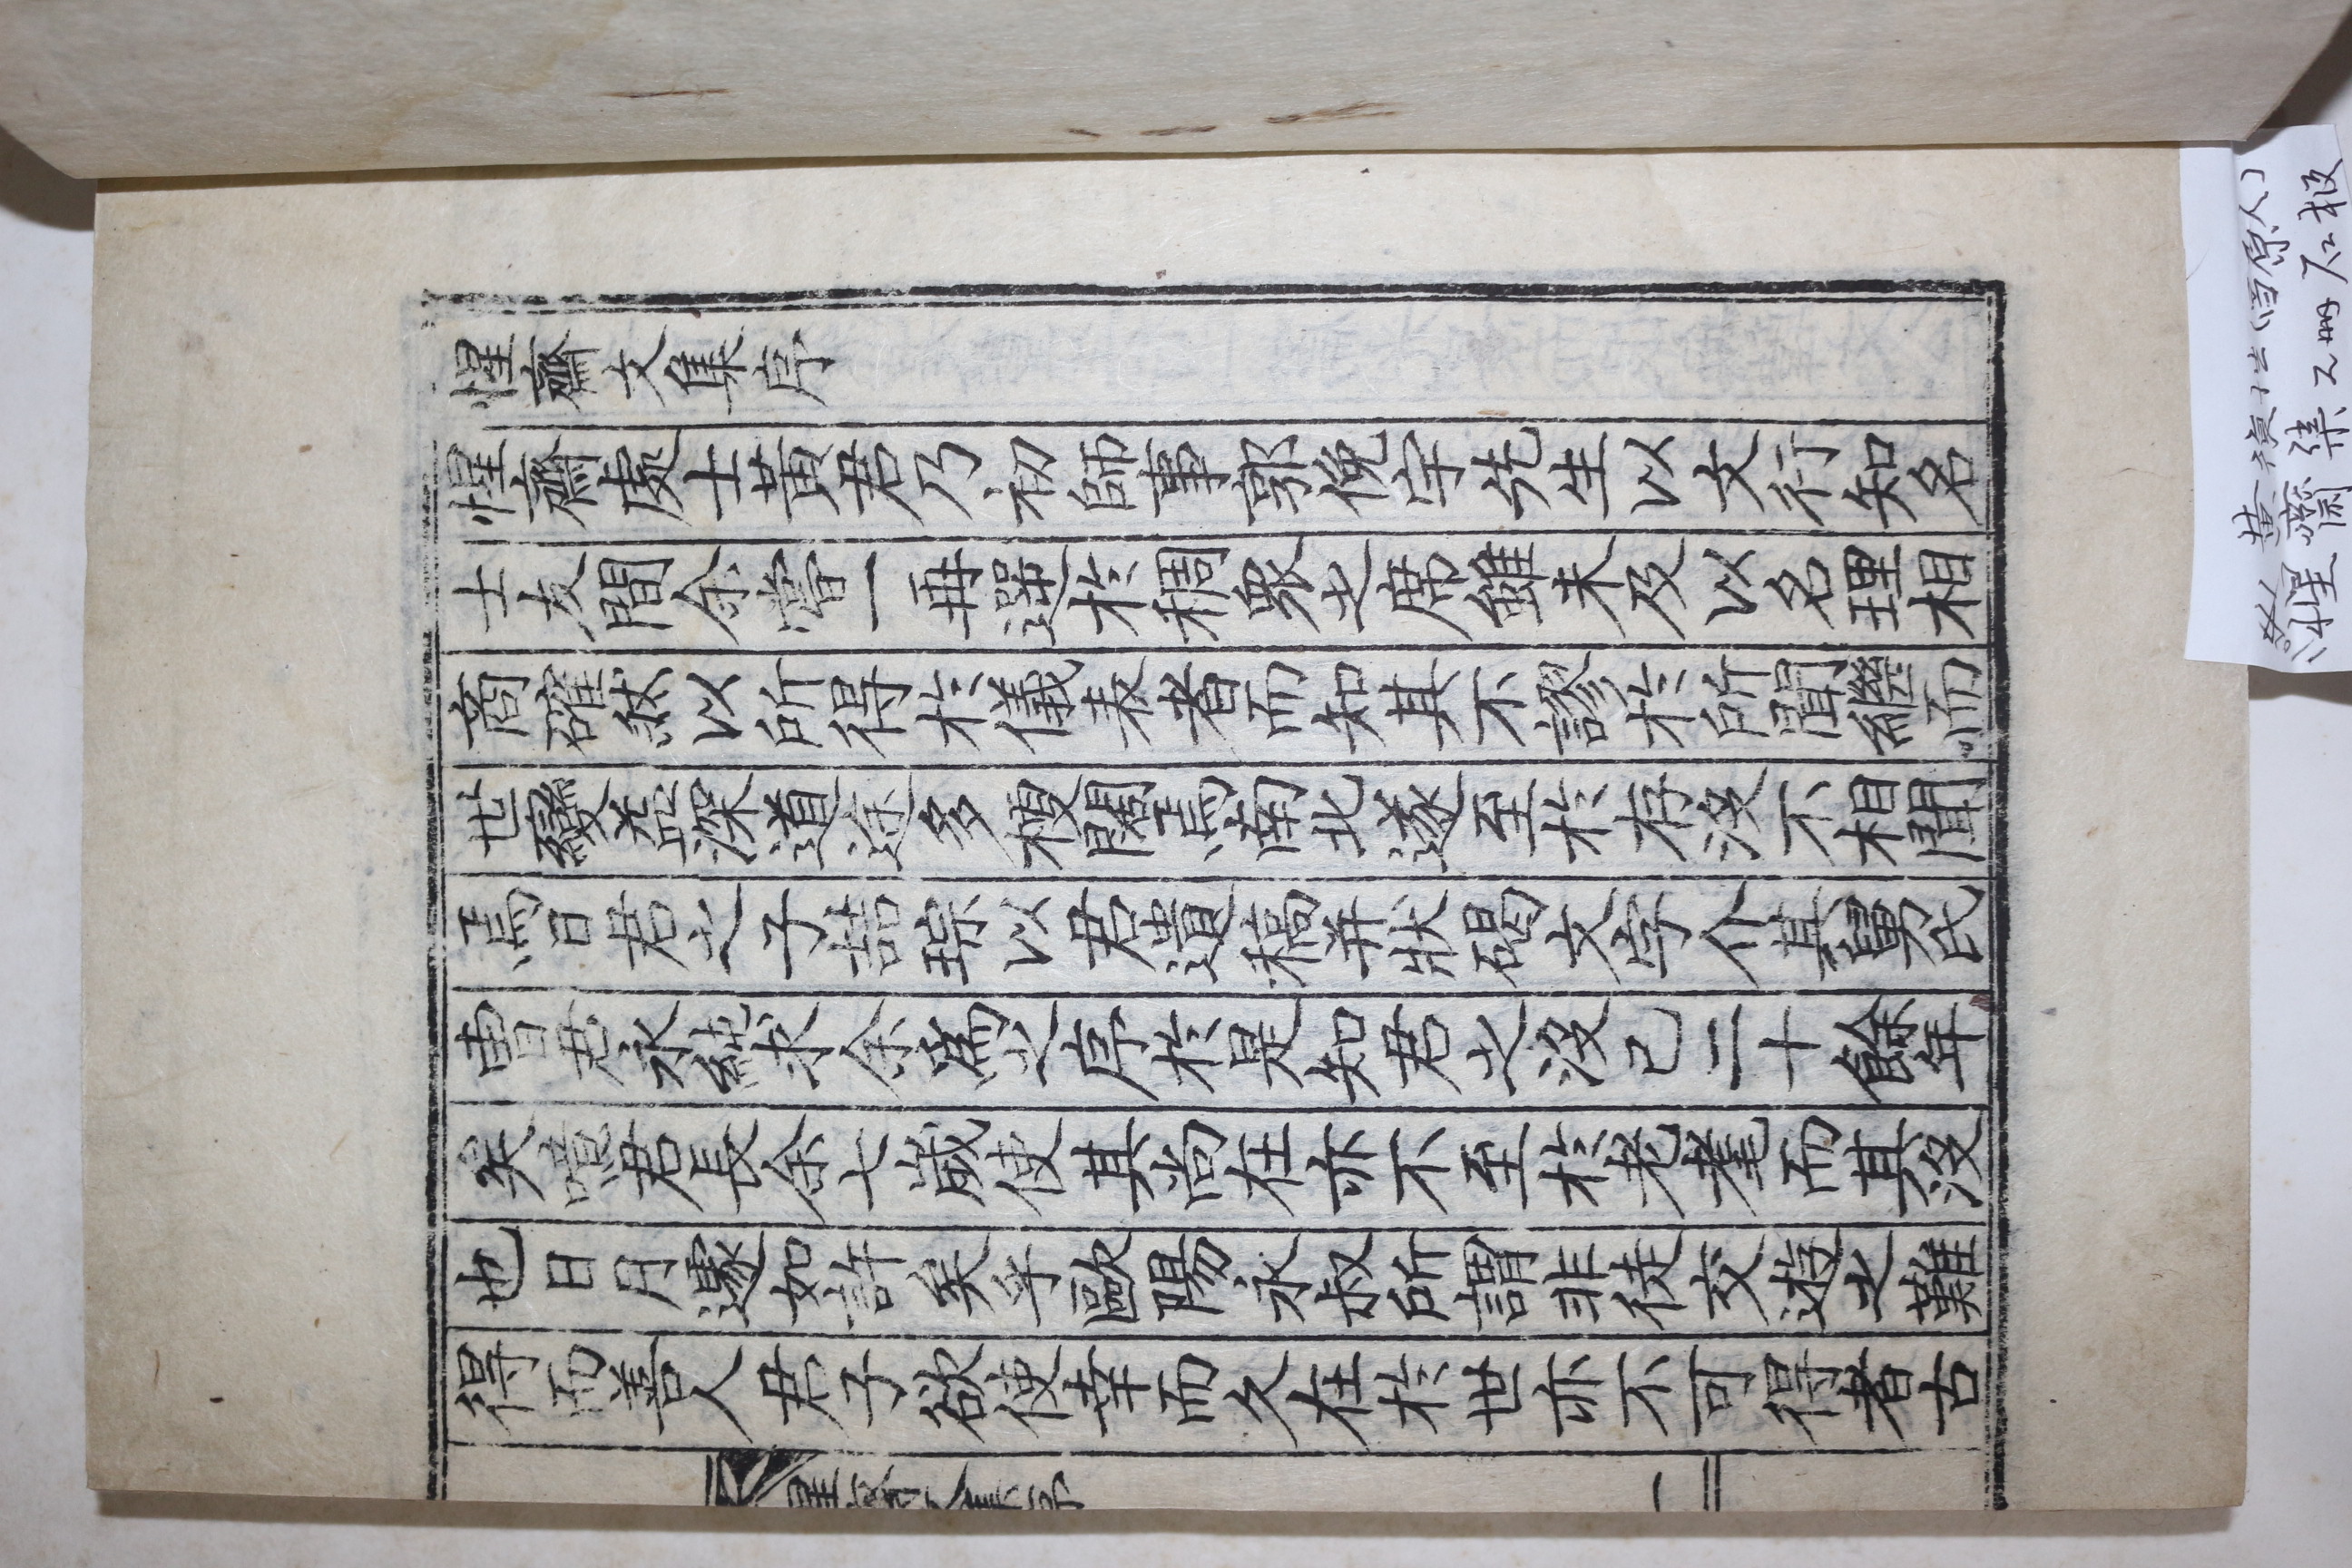 惺齋文集序
惺齋處士黃君乃初師事郭俛宇先生以文行知名
士友間余嘗一再選於稠衆之席雖未及以名理相
商確然以所得於儀表者而知其不謬於所聞繼而
世變益深道途多梗闊焉南北遂至於存沒不相聞
焉日君之子喆琮以君遺稿并狀碣文字介其舅氏
曺君永純求余爲之序於是知君之沒已二十餘年
矣噫君長余七歲使其尚在亦不至於老耄而其沒
也日月遽如許矣乎歐陽永叔所謂非徒交遊之難
得而善人君子欲使幸而久在於世亦不可得者古
惺齋文集序
一
黃
惺齋集 2冊 石板